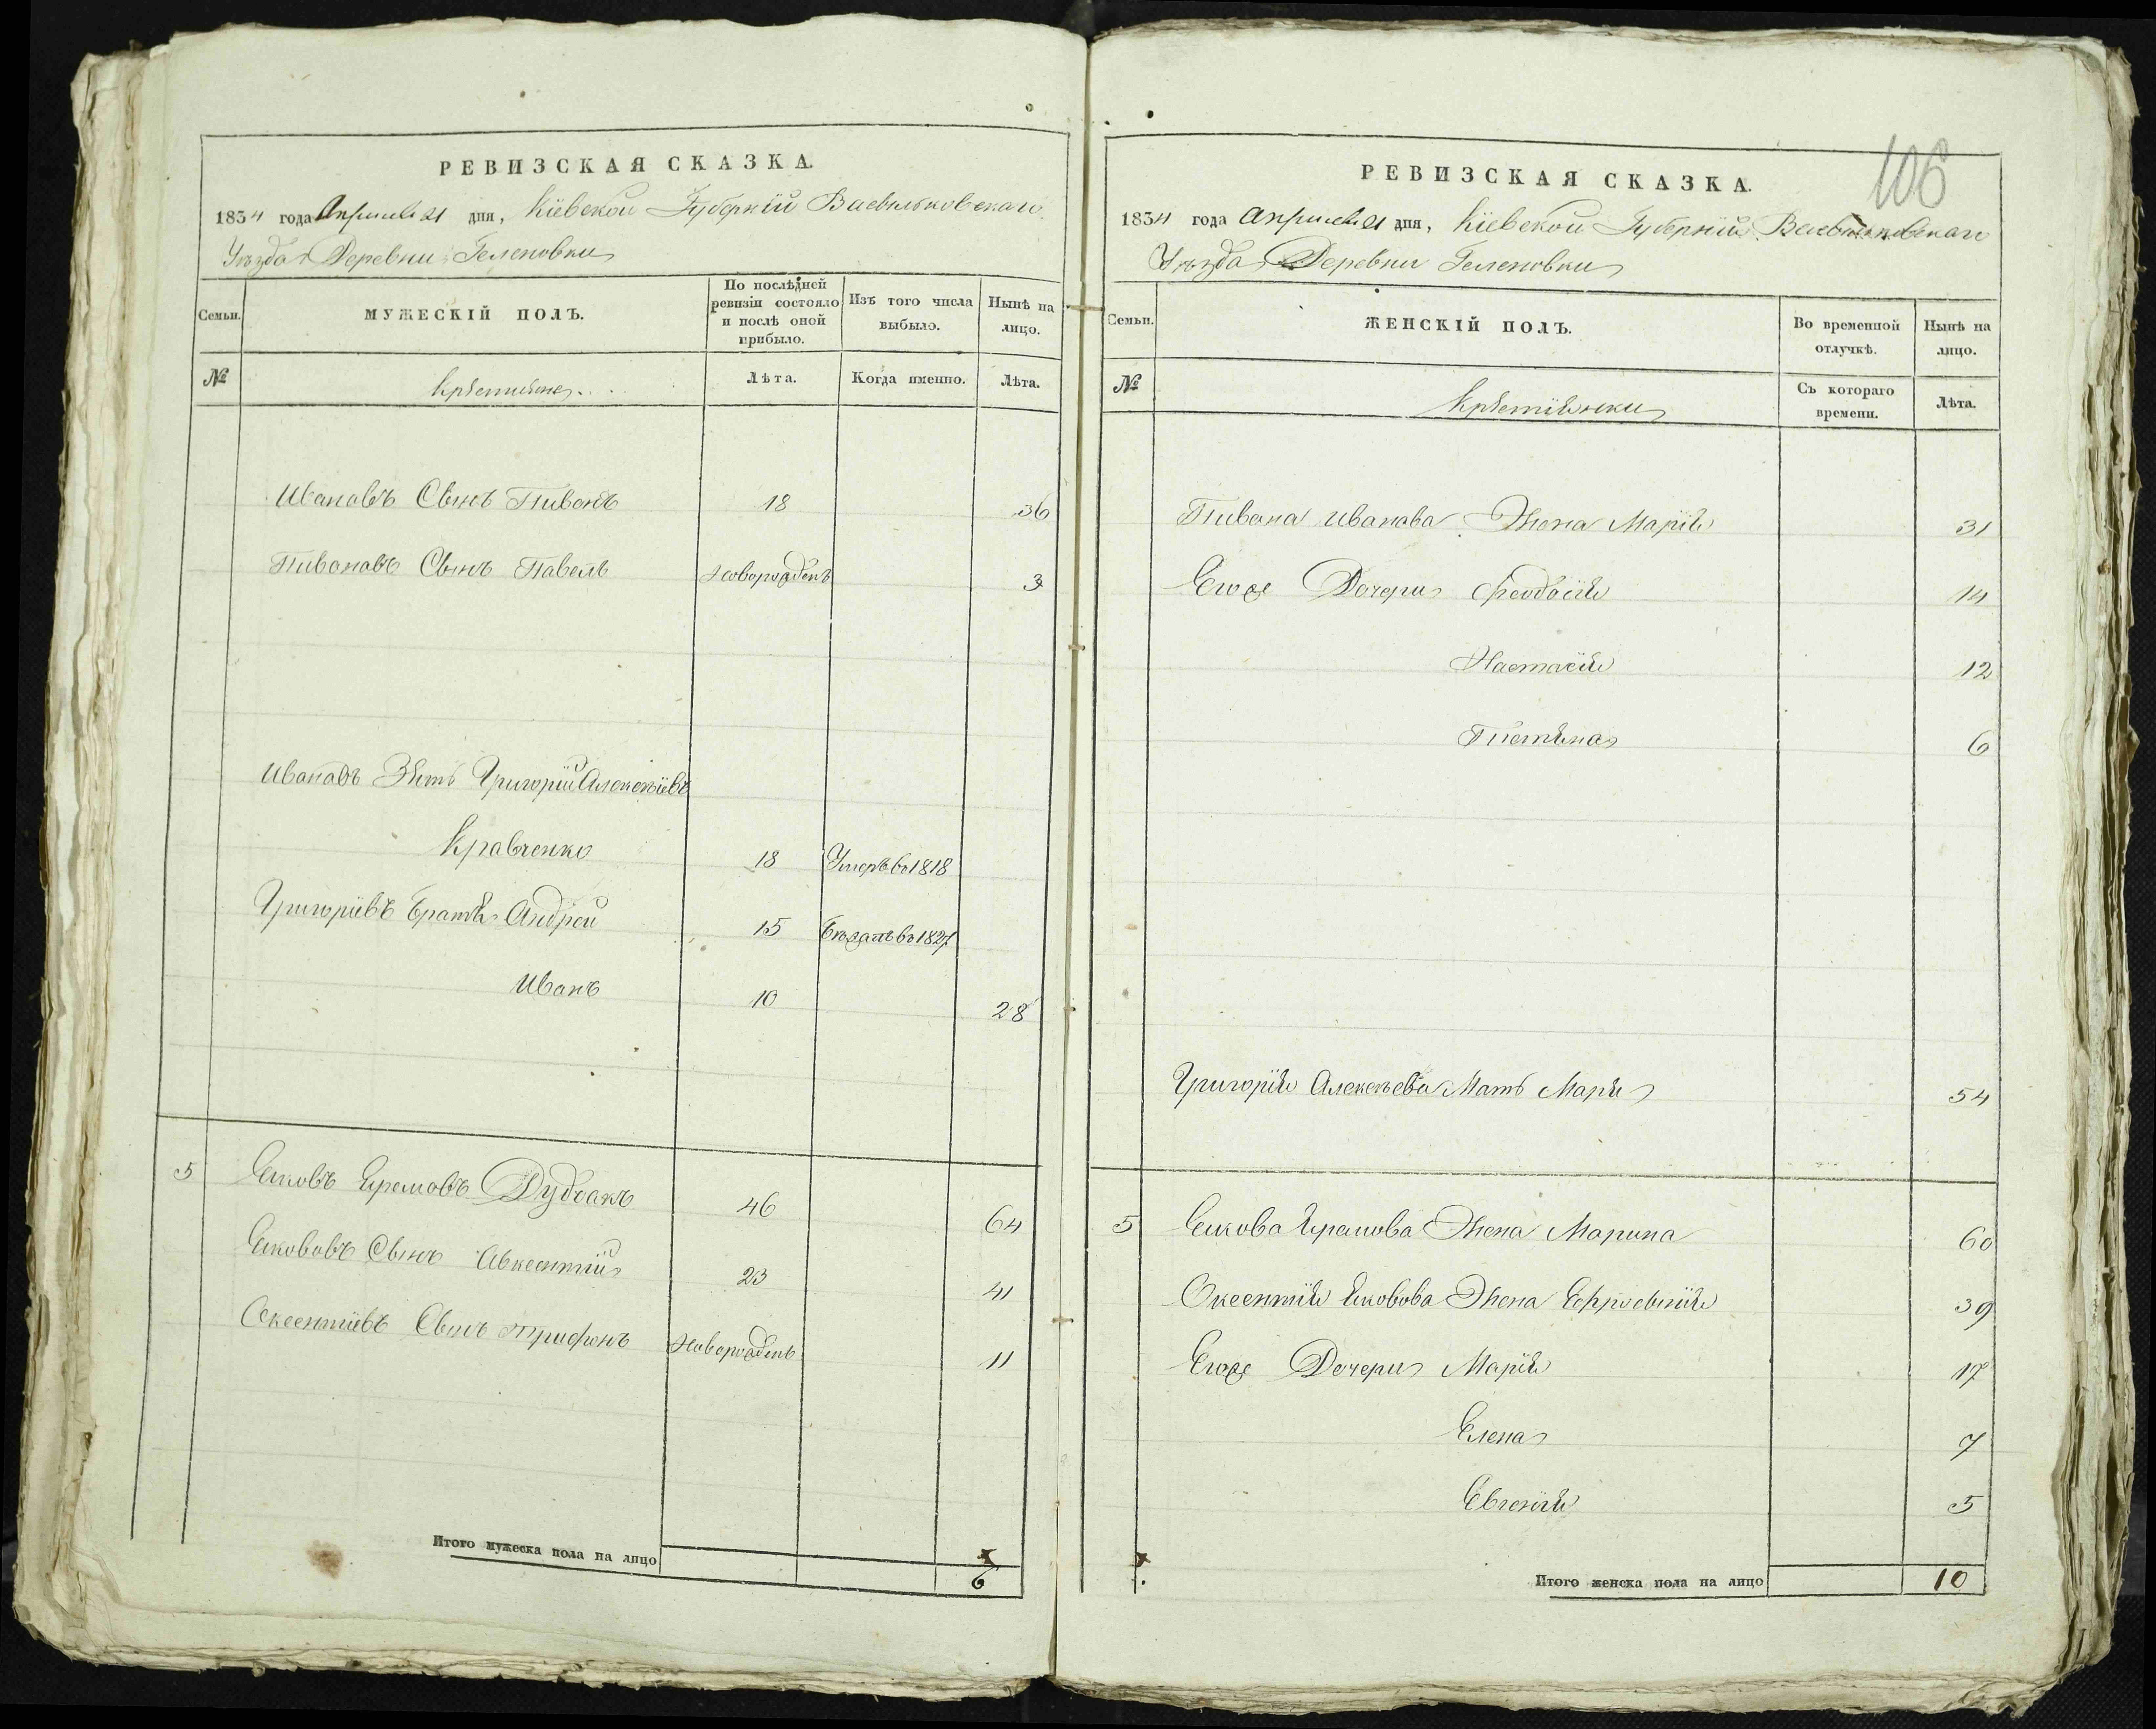 РЕВИЗСКАЯ СКАЗКА.
1834 года Апреля 21 дня, Кіевской Губерніи Васильковскаго
Уѣзда Деревни Геленовки
Семьи.
МУЖЕСКІЙ ПОЛЪ.
По послѣдней ревизіи состояло и послѣ оной прибыло.
Изъ того числа выбыло.
Нынѣ на лицо.
№
Лѣта.
Когда именно.
Лѣта.
Ивановъ Сынъ Пивонъ 18 36
Пивоновъ Сынъ Павелъ новорожденъ 3
Ивановъ Зѣть Григорій Алексѣіевъ
Кравченко 18 Умеръ въ 1818
Григоріевъ Братъя Андрей 15 Бѣжалъ въ 1827
Иванъ 10 28
5 Ековъ Еремовъ 46 64
Ековovъ Сынъ Авксентій 23 41
Оксентіевъ Сынъ Трифонъ новорожденъ 11
Итого мужеска пола на лицо 6
106
РЕВИЗСКАЯ СКАЗКА.
1834 года Апреля 21 дня, Кіевской Губерніи Васильковскаго
Уѣзда Деревни Геленовки
Семьи.
ЖЕНСКІЙ ПОЛЪ.
Во временной отлучкѣ.
Нынѣ на лицо.
№
Съ котораго времени.
Лѣта.
Пивона Иванова Жена Маріѣ 31
Егоже Дочери Феодосіѣ 14
Настасіѣ 12
6
Григоріѣ Алексѣева Мать Марѣ 54
5 Екова Ерамова Жена Марина 60
Оксентіѣ Ековова Жена Ефросиніѣ 39
Егоже Дочери Маріѣ 17
Елена 7
Евгеніѣ 5
Итого женска пола на лицо 10